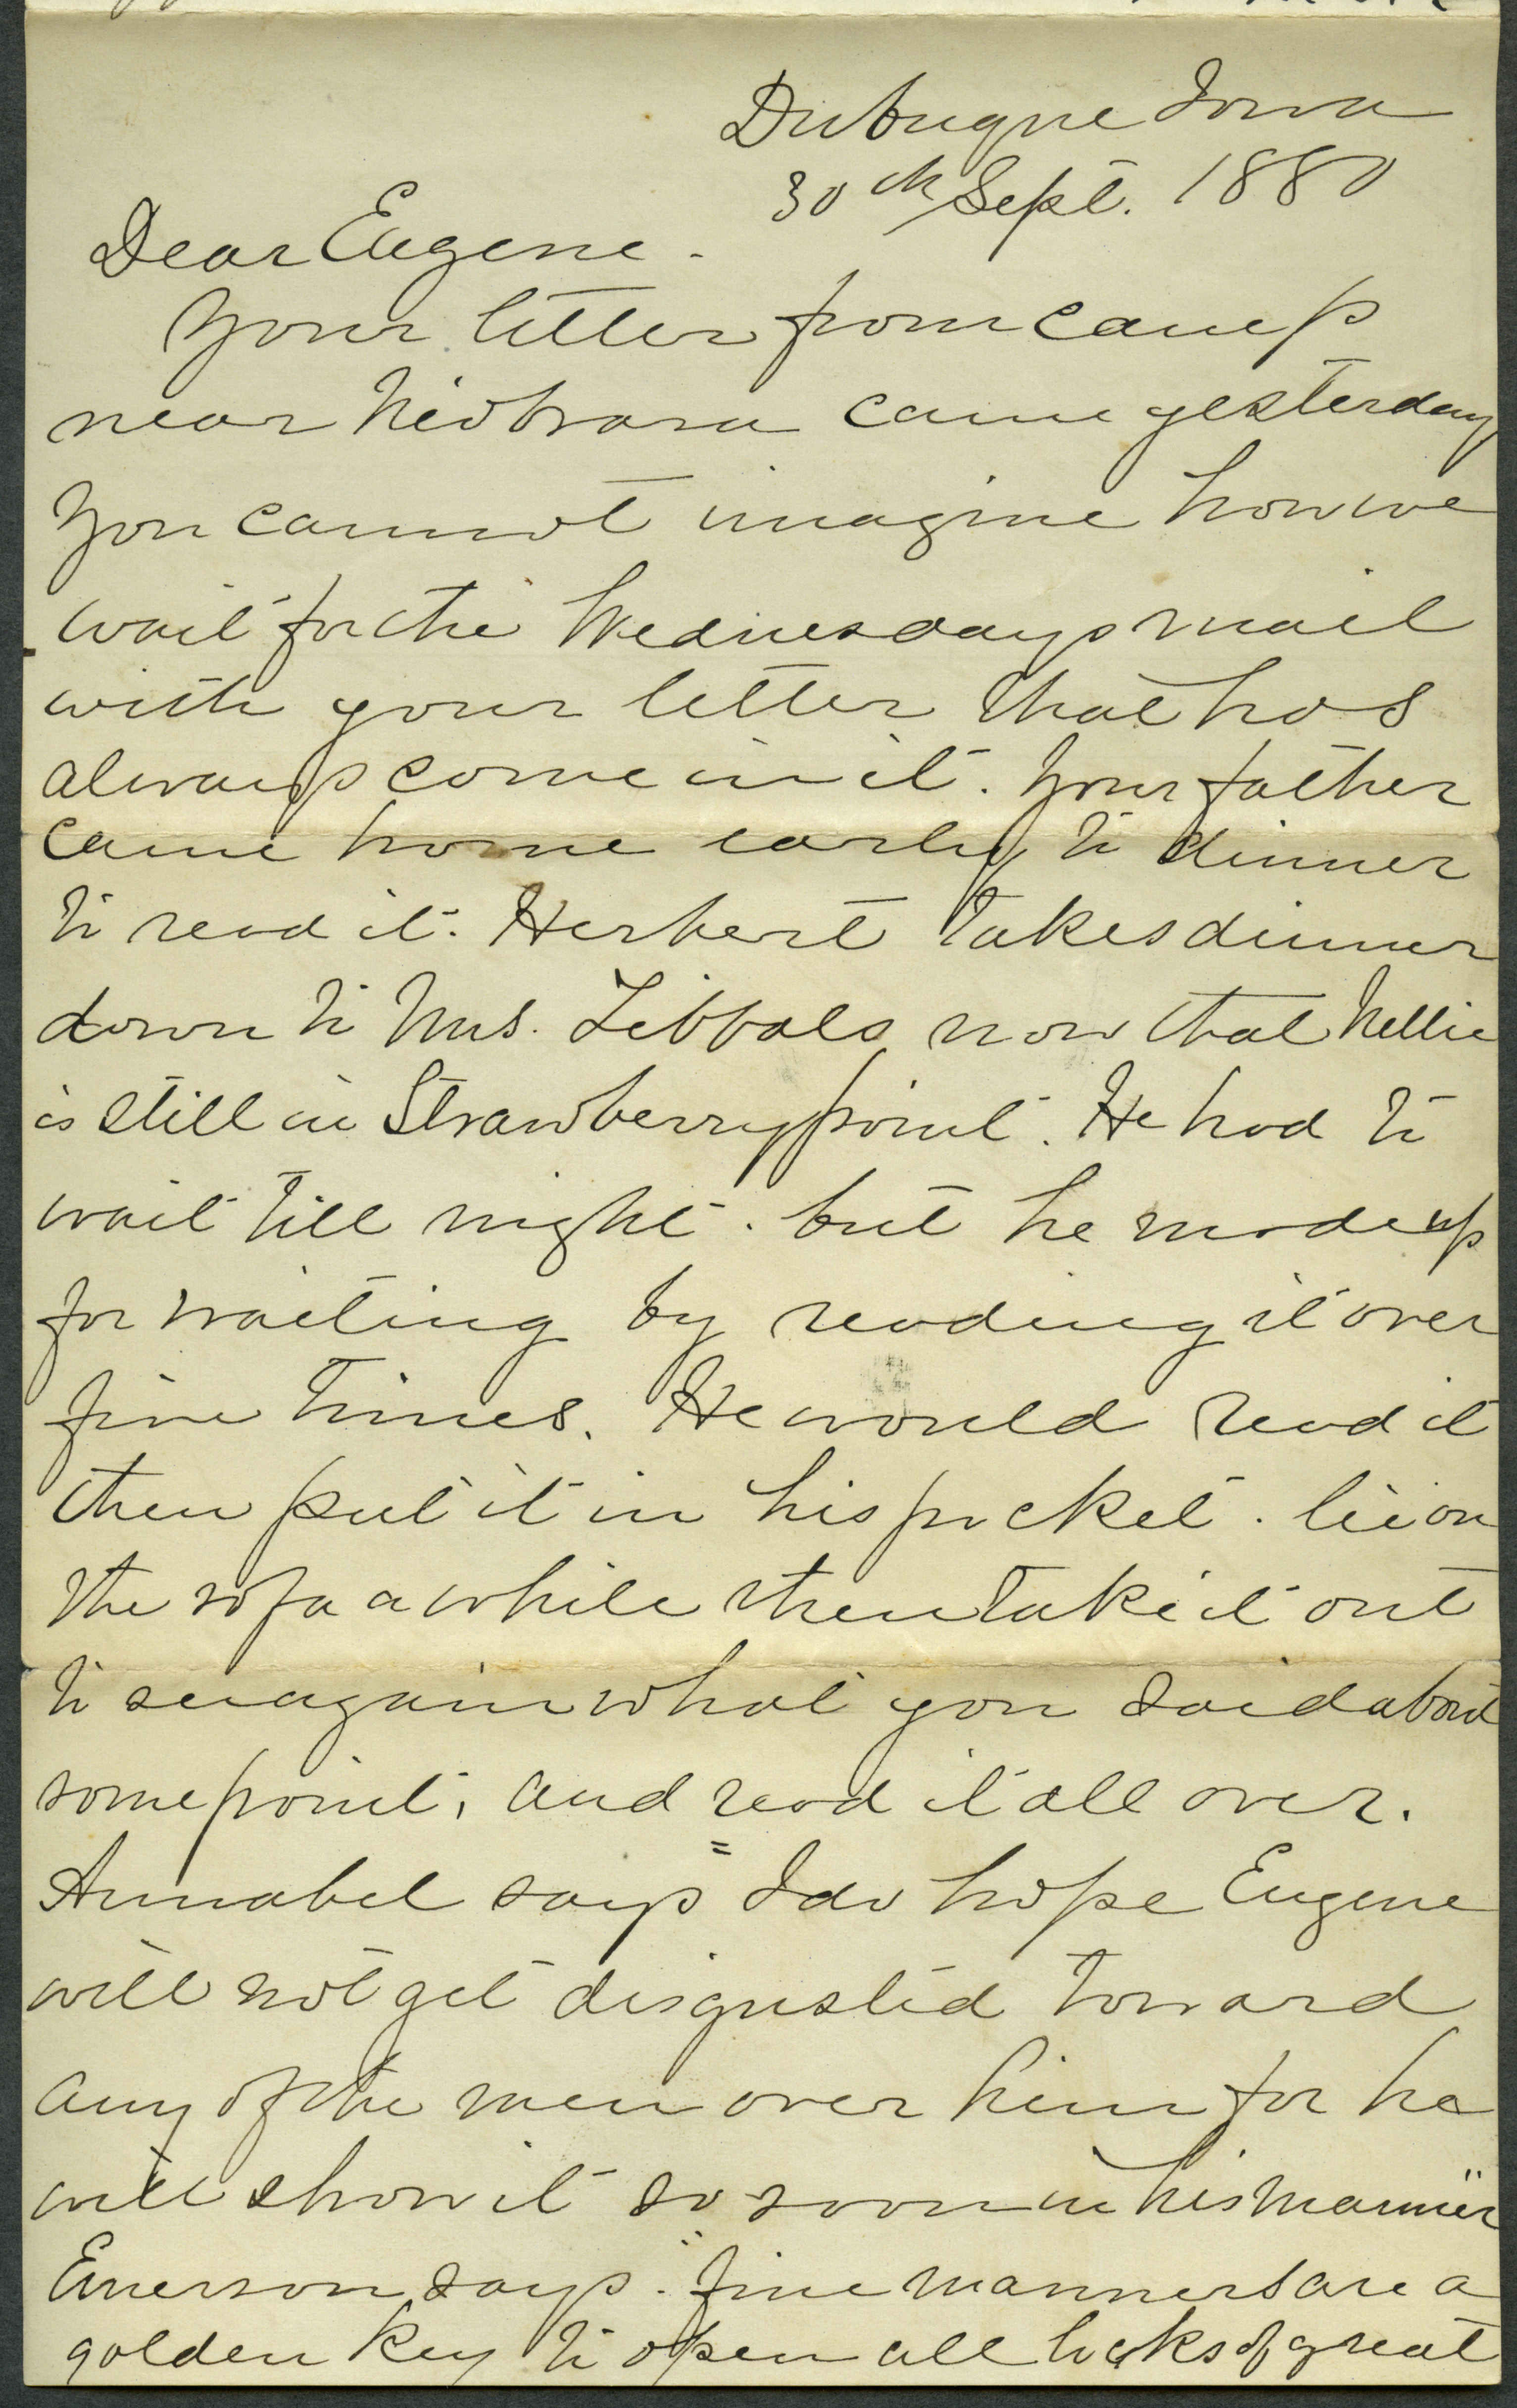 Dubuque Iowa
30th Sept. 1880
Dear Eugene.
Your letter from camp
near Niobrara came yesterday
You cannot imagine how we
wait for the Wednesdays mail
with your letter that has
always come in it. Your father
came home early to dinner
to read it. Herbert takes dinner
down to Mrs. Tibbals now that Nellie
is still in Strawberrypoint. He had to
wait till night. but he made up
for waiting by reading it over
five times. He would read it
then put it in his pocket. lie on
the sofa a while then take it out
to see again what you said about
some point, and read it all over.
Annabel says "I do hope Eugene
will not get disgusted toward
any of the men over him for he
will show it so soon in his manner"
Emerson says. "fine manners are a
golden key to open all locks of great